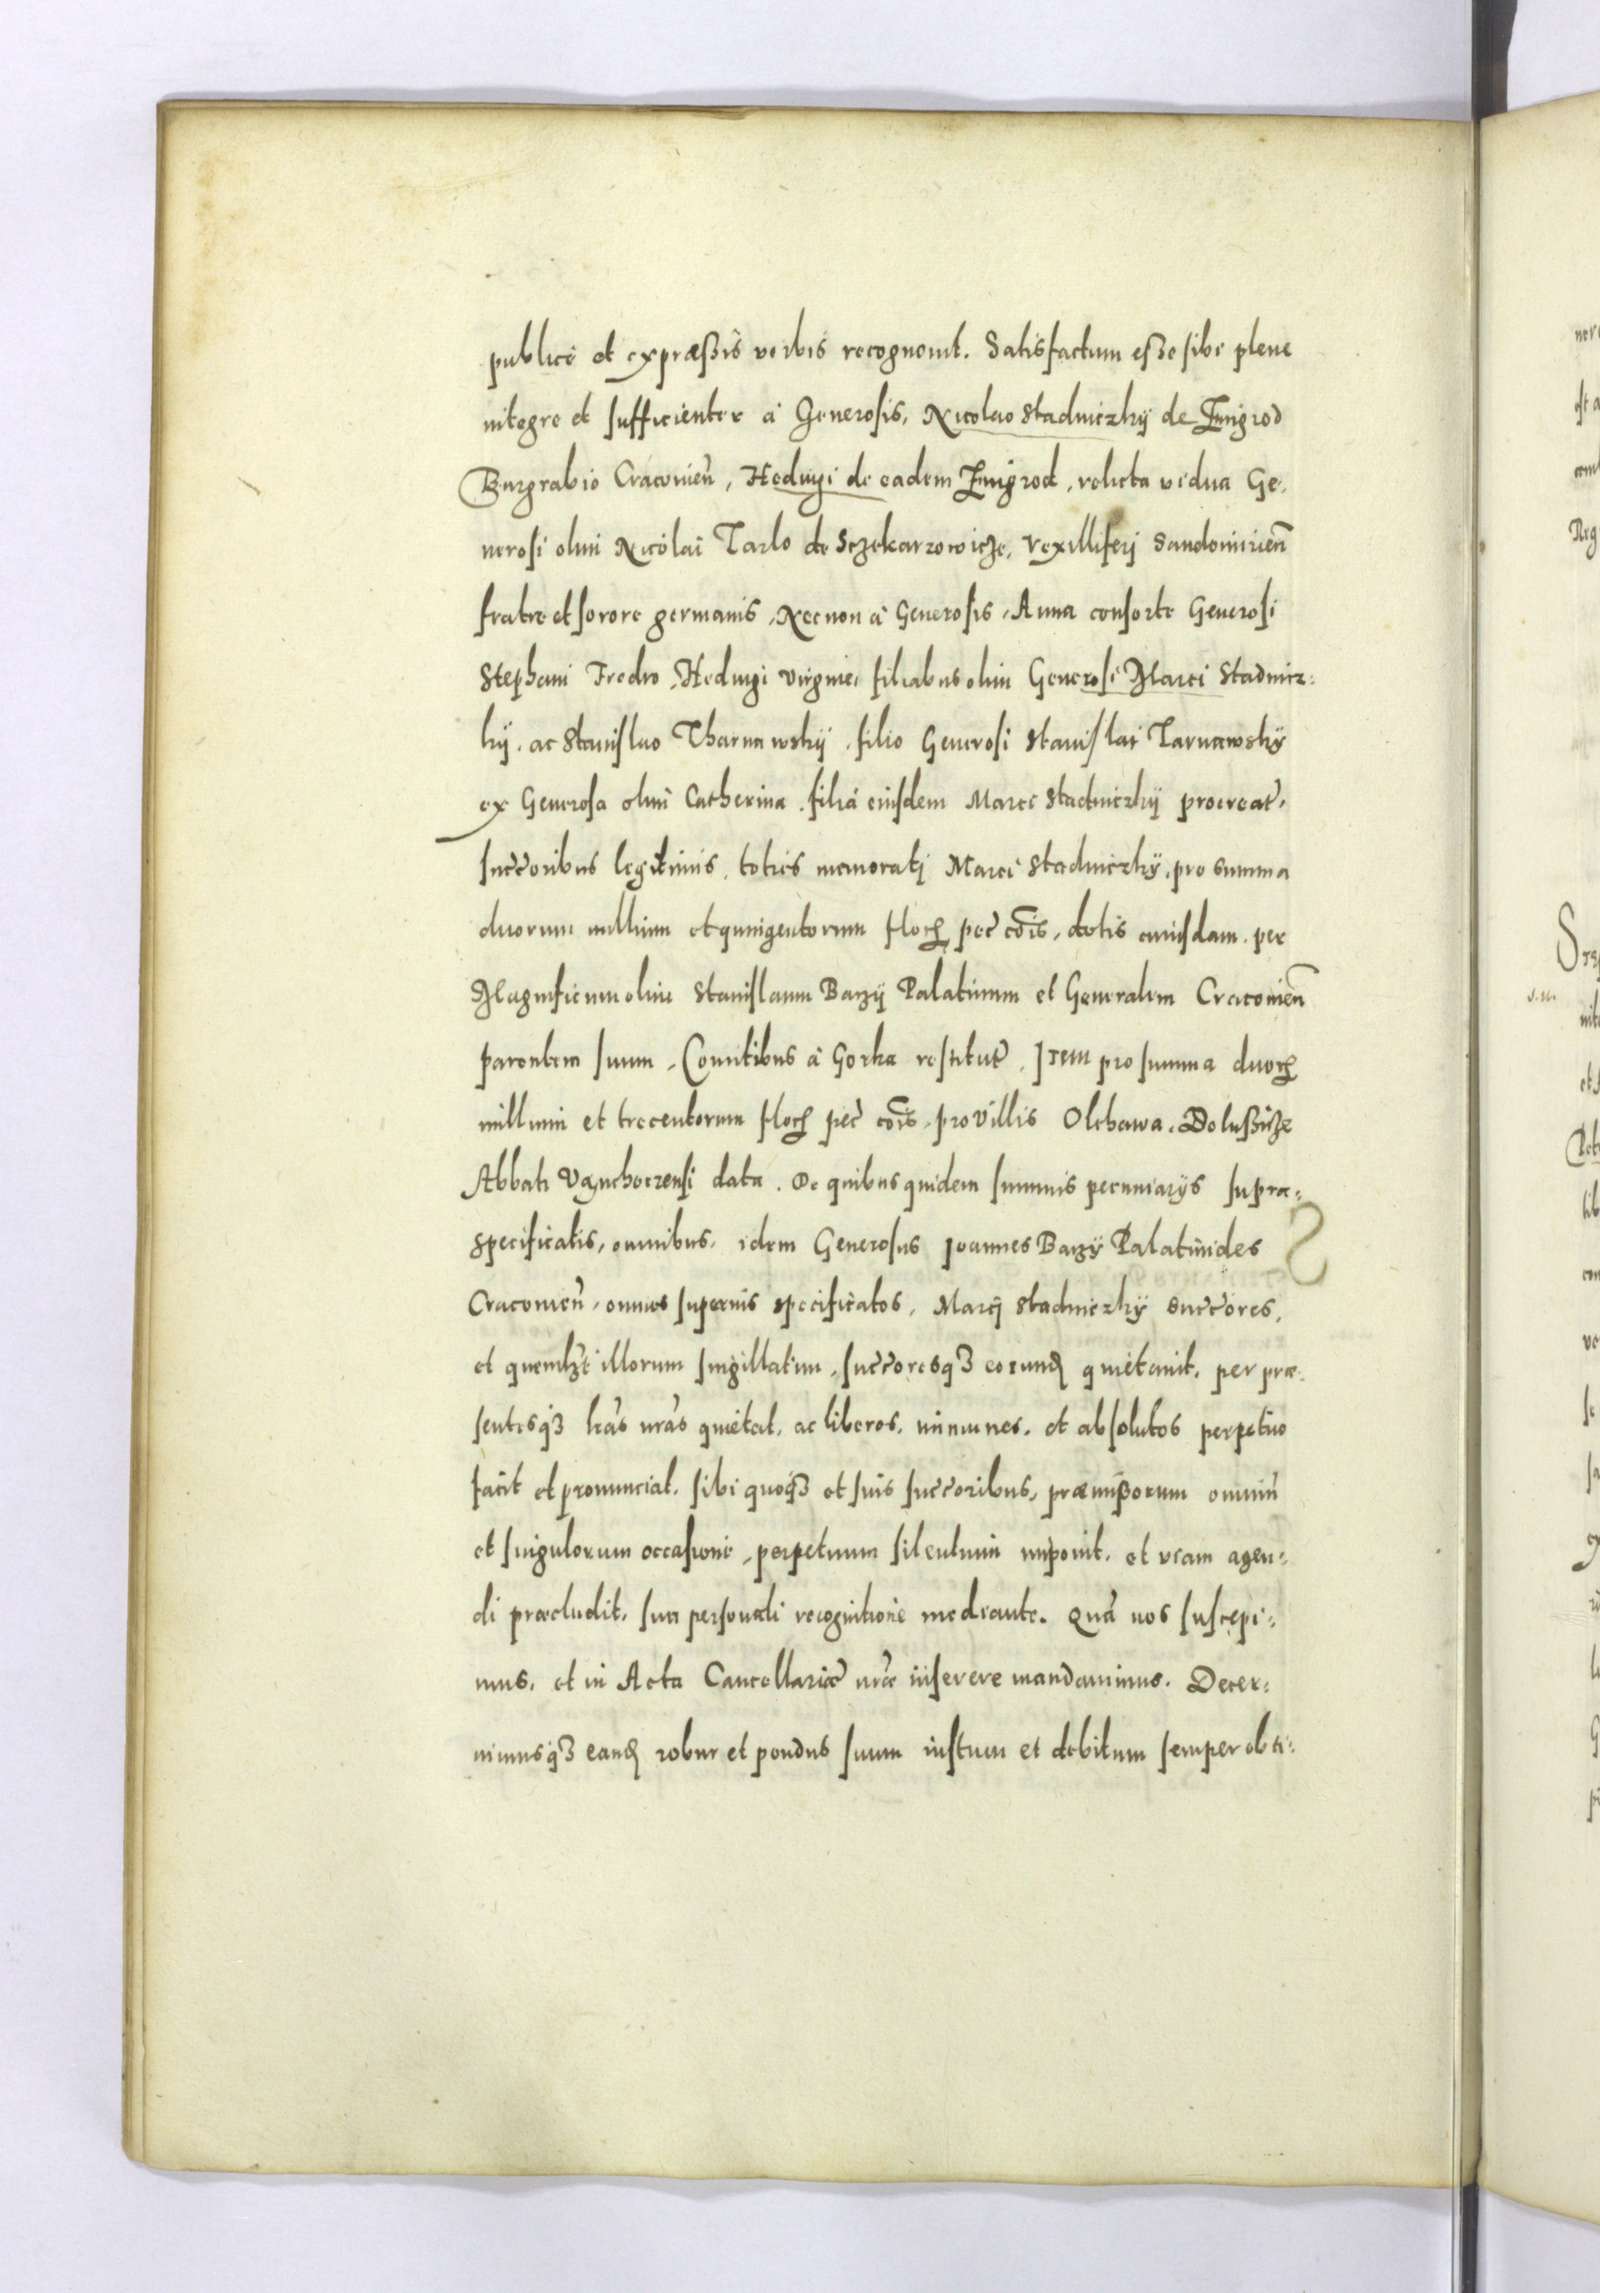 publicè et expræßis verbis recognovit. Satisfactum eße sibi plene
integre et sufficienter à Generosis, Nicolao Stadniczky de Zmigrod
Burgrabio Cracovien̄, Hedvigi de eadem Zmigrod, relicta vidua Ge-
nerosi olim Nicolai Tarlo de Sczekarzowicze, Vexilliferi Sandomirien̄
fratre et sorore germanis, Necnon à Generosis, Anna consorte Generosi
Stephani Fredro, Hedvigi virgine, filiabus olim Generosi Marci Stadnicz:
ky, ac Stanislao Tharnawsky, filio Generosi Stanislai Tarnawsky
ex Generosa olim Catherina, filiá eiusdem Marci Stadniczky procreat̄,
succ̄oribus legitimis, toties memorati Marci Stadniczky, pro summa
duorum millium et quingentorum floꝝ pec̄ cōis, dotis cuiusdam, per
Magnificum olim Stanislaum Barzy Palatinum et Generalem Cracovien̄
parentem suum, Comitibus à Gorka restitut̄, Item pro summa duoꝝ
millium et trecentorum floꝝ pec̄ cōis, pro villis Olchawa, Doluszicze
Abbati Vąnchocensi data. De quibus quidem summis pecuniarys supra=
specificatis, omnibus, idem Generosus Joannes Barzy Palatinides
Cracovien̄, omnes superius specificatos, Marcij Stadniczky succ̄ores,
et quemlꝫt illorum singillatim, succ̄oresqꝫ eorunđ quietavit, per præ-
sentesqꝫ lrās nrās quietat, ac liberos, immunes, et absolutos perpetuo
facit et pronunciat, sibi quoqꝫ et suis succ̄oribus, præmißorum omniū
et singulorum occasione, perpetuum silentium imponit, et viam agen:
di præcludit, sua personali recognitione mediante. Quā nos suscepi:
mus, et in Acta Cancellariæ nrǣ inserere mandavimus. Decer:
nimusqꝫ eanđ robur et pondus suum iustum et debitum semper obti: